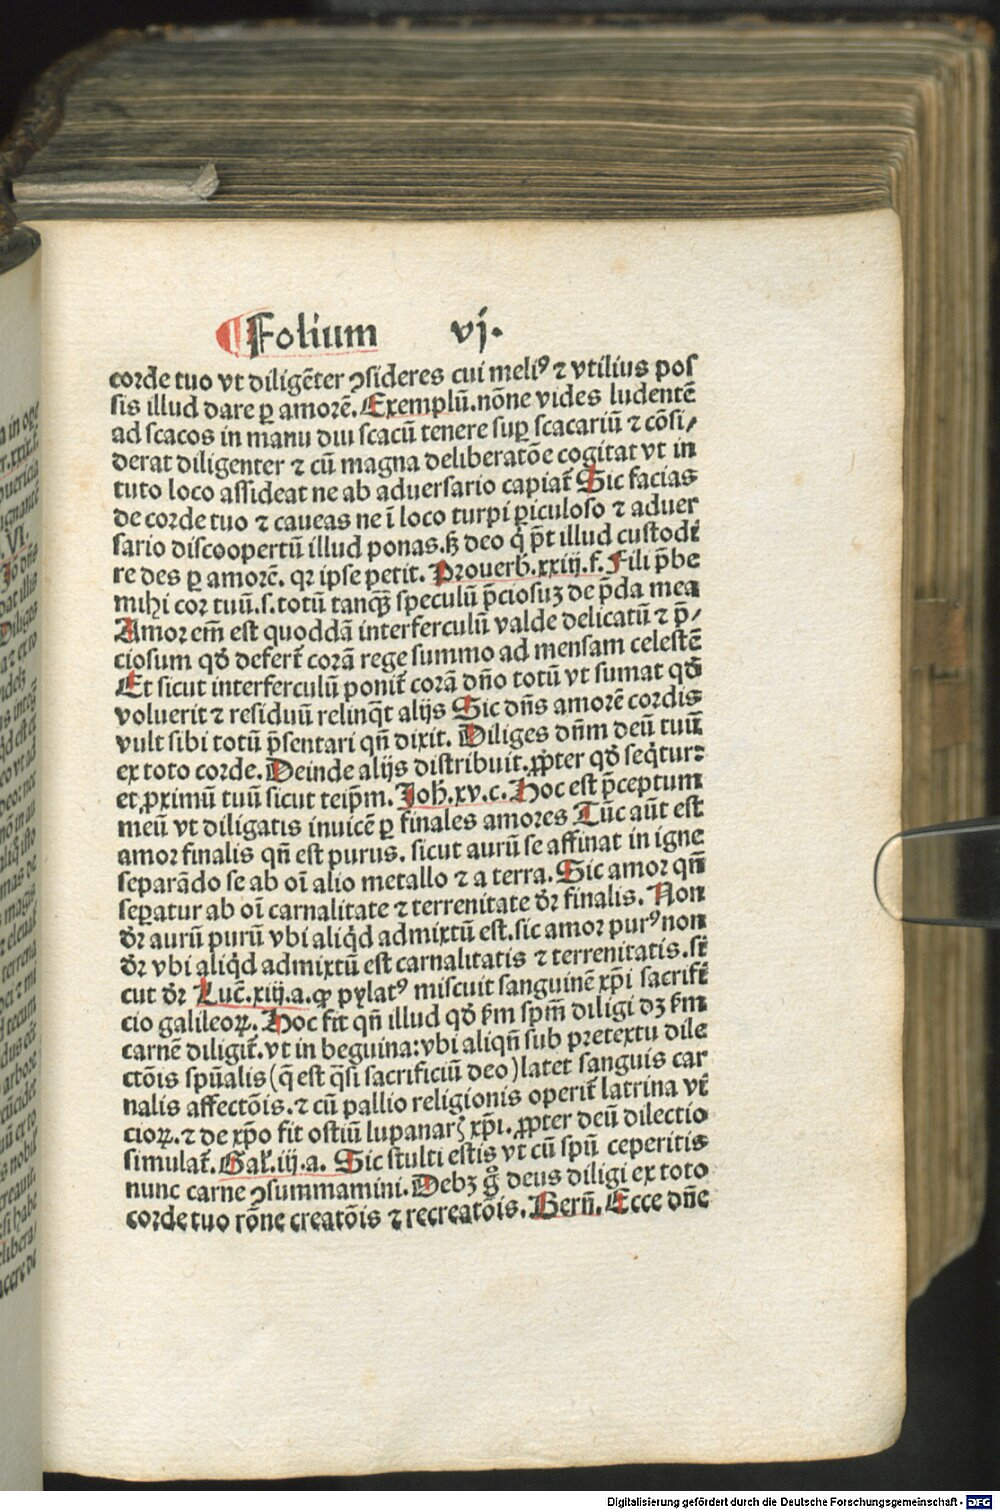 Folium vj.
corde tuo vt diligēter ꝯsideres cui meliꝰ ⁊ vtilius pos
sis illud dare ꝑ amorē. Exemplū. nōne vides ludentē
ad scacos in manu diu scacū tenere suꝑ scacariū ⁊ cōsi/
derat diligenter ⁊ cū magna deliberatōe cogitat vt in
tuto loco assideat ne ab aduersario capiat̄ Sic facias
de corde tuo ⁊ caueas ne ī loco turpi ꝑiculoso ⁊ aduer
sario discoopertū illud ponas. ß deo q̇ p̄t illud custodi
re des ꝑ amorē. qꝛ ipse petit. Prouerb̄. xxiij. f. Fili p̄be
mihi cor tuū. s. totū tanqȝ̄ speculū p̄ciosuȝ de p̄da mea
Amor em̄ est quoddā interferculū valde delicatū ⁊ p̄/
ciosum qd̄ defert̄ corā rege summo ad mensam celestē
Et sicut interferculū ponit̄ corā dn̄o totū vt sumat qd̄
voluerit ⁊ residuū relinq̄t alijs Sic dn̄s amorē cordis
vult sibi totū p̄sentari qn̄ dixit. Diliges dn̄m deū tuū
ex toto corde. Deinde alijs distribuit. ꝓpter qd̄ seq̇tur:
et ꝓximū tuū sicut teip̄m. Joh̄. xv. c. Hoc est p̄ceptum
meū vt diligatis inuicē ꝑ finales amores Tūc aūt est
amor finalis qn̄ est purus. sicut aurū se affinat in igne
separādo se ab oī alio metallo ⁊ a terra. Sic amor qn̄
seꝑatur ab oī carnalitate ⁊ terrenitate dr̄ finalis. Non
dr̄ aurū purū vbi aliq̇d admixtū est. sic amor purꝰ non
dr̄ vbi aliq̇d admixtū est carnalitatis ⁊ terrenitatis. si
cut dr̄ Luc̄. xiij. a. ꝙ pylatꝰ miscuit sanguinē xp̄i sacrifi
cio galileoꝝ. Hoc fit qn̄ illud qd̄ ẜm spm̄ diligi dȝ ẜm
carnē diligit̄. vt in beguina: vbi aliqn̄ sub pretextu dile
ctōis spūalis (q̄ est q̄si sacrificiū deo) latet sanguis car
nalis affectōis. ⁊ cū pallio religionis operit̄ latrina vi
cioꝝ. ⁊ de xp̄o fit ostiū lupanarꝭ xp̄i. ꝓpter deū dilectio
simulat̄. Gal̄. iij. a. Sic stulti estis vt cū spū ceperitis
nunc carne ꝯsummamini. Debȝ g̊ deus diligi ex toto
corde tuo rōne creatōis ⁊ recreatōis. Bern̄. Ecce dn̄e
Digitalisierung gefördert durch die Deutsche Forschungsgemeinschaft - DFG